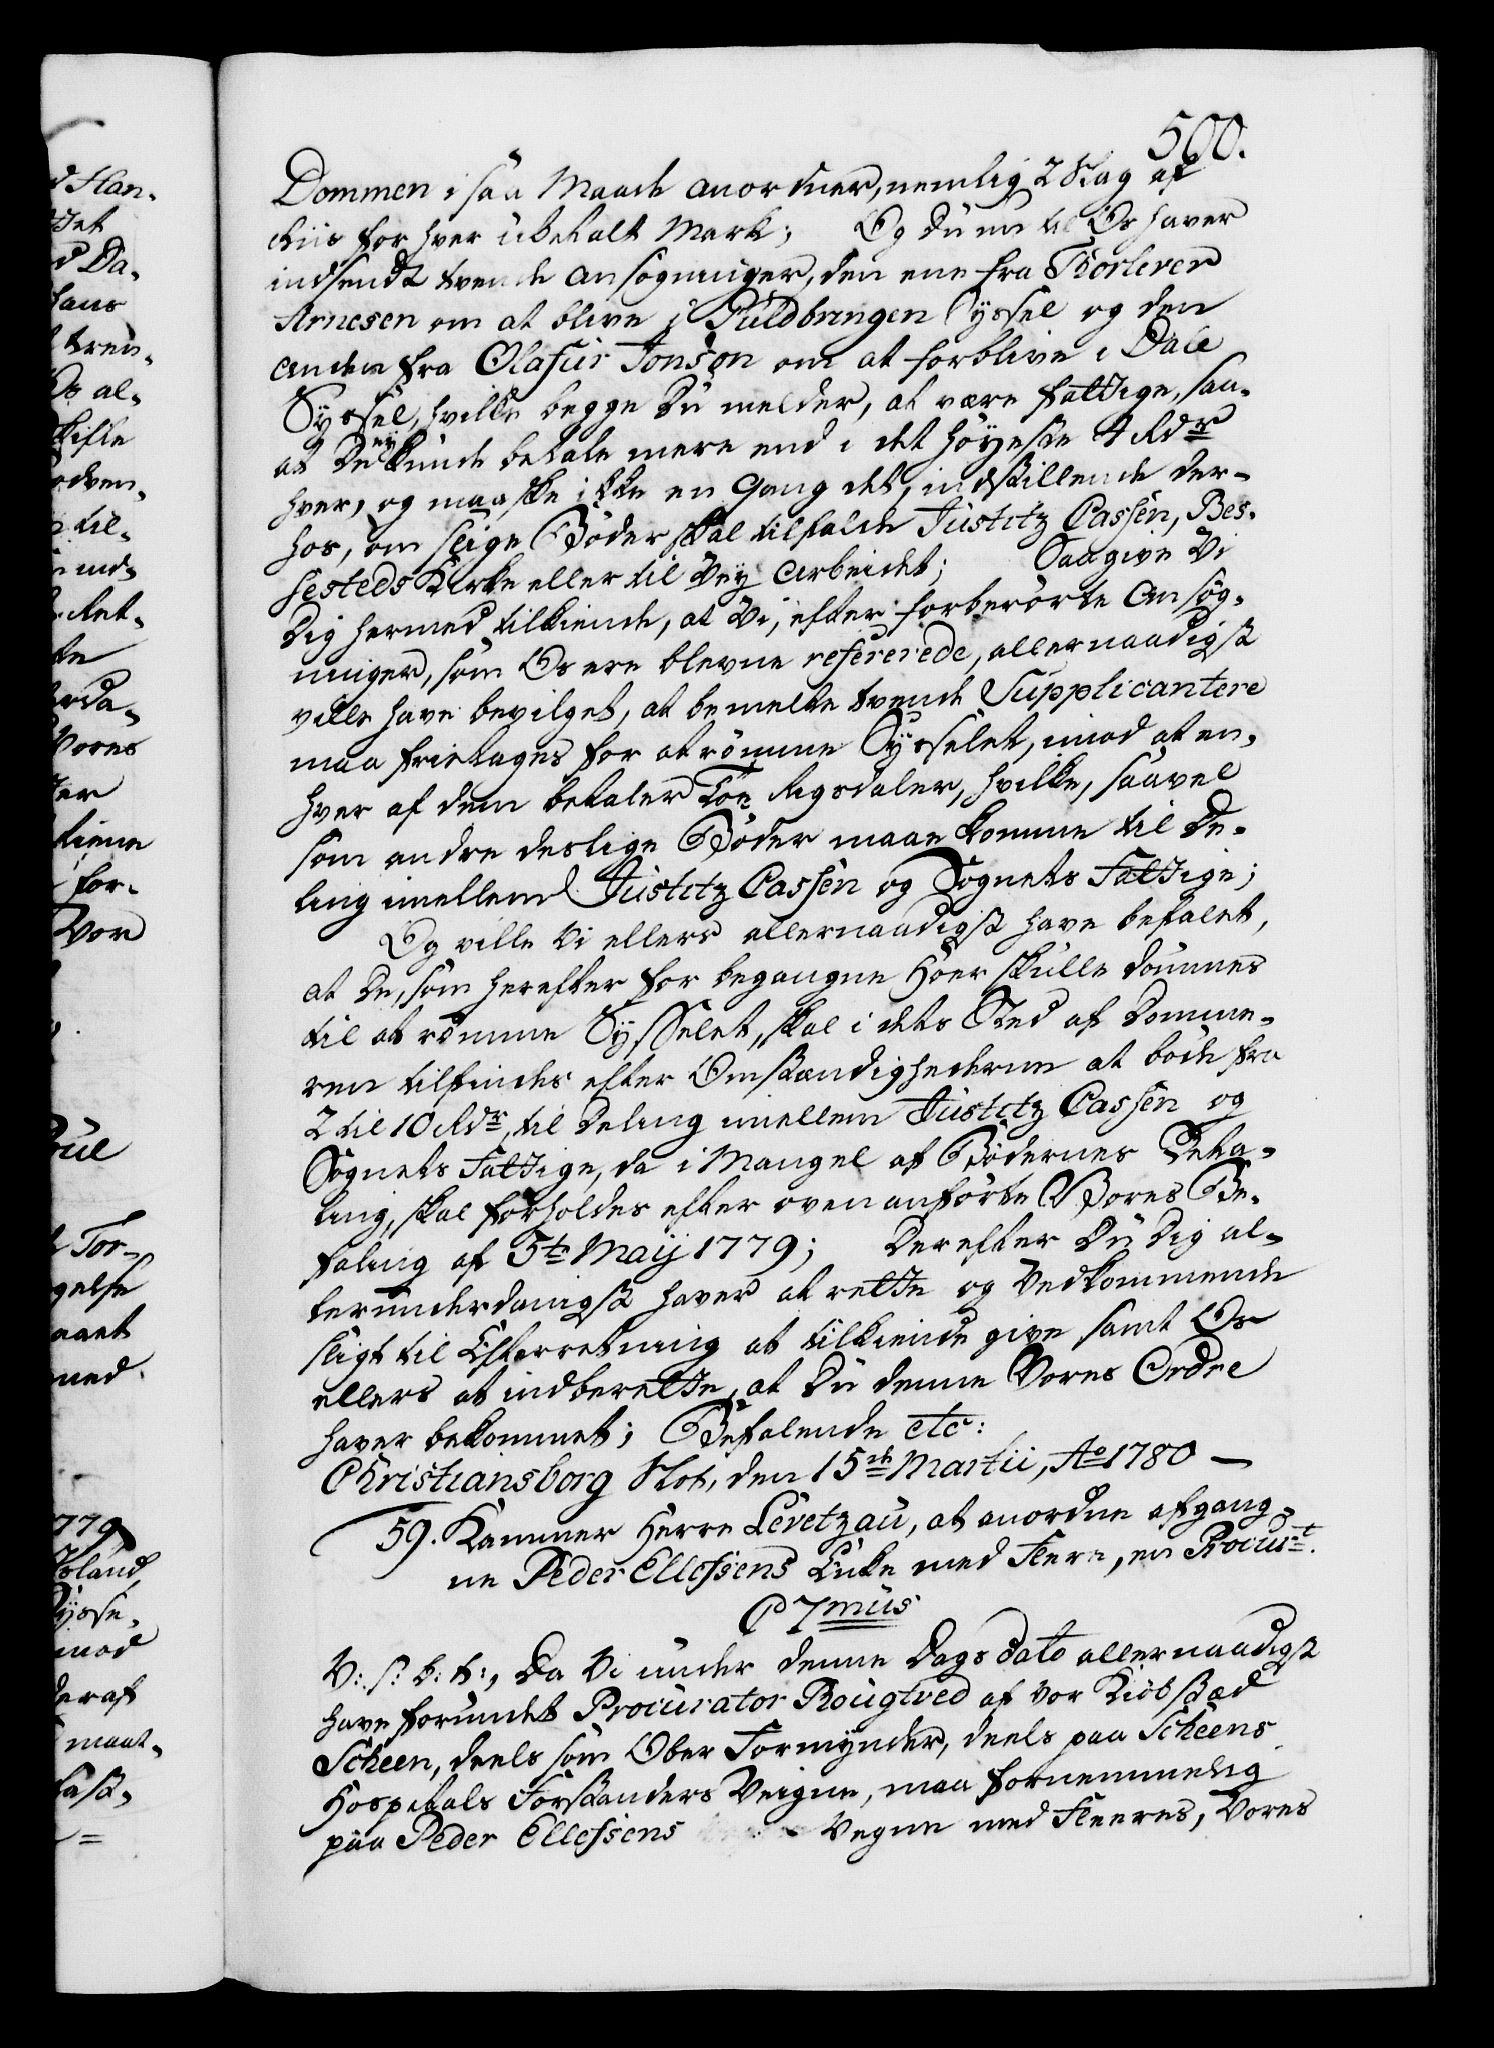 500.
Dommen i saa Maade anordner, nemlig 2 Slag af
Riis for hver ubetalt Mark; Og Du nu til Os haver
indsendt tvende Ansøgninger, den ene fra Thorlever
Arnesen om at blive i Guldbringen Syssel og den
anden fra Olafur Jonson om at forblive i Dale
Syssel, hvilke begge Du melder, at være fattige, saa-
at De ey kunde betale mere end i det høyeste 4 Rdr
hver, og maaske ikke en Gang det, indstillende der-
hos, om slige Bøder skal tilfalde Justitz Cassen, Bes-
sesteds Kirke eller til Vey Arbeidet; Saa give Vi
Dig hermed tilkiende, at Vi, efter forberørte Ansøg-
ninger, som Os ere blevne refererede, allernaadigst
ville have bevilget, at bemelte tvende Supplicantere
maa fritages for at rømme Sysselet, imod at en-
hver af dem betaler Toe Rigsdaler, hvilke, saavel
som andre deslige Bøder maae komme til De-
ling imellem Justitz Cassen og Sognets Fattige;
Og ville Vi ellers allernaadigst have befalet,
at De, som herefter for begangne Hoer skulle dømmes
til at rømme Sysselet, skal i dets Sted af Domme-
ren tilfindes efter Omstændighederne at bøde fra
2 til 10 Rdr, til Deling imellem Justitz Cassen og
Sognets Fattige, da i Mangel af Bødernes Beta-
ling, skal forholdes efter ovenanførte Vores Be-
faling af 5te Maij 1779; Derefter Du Dig al-
lerunderdanigst haver at rette og Vedkommende
sligt til Efterretning at tilkiende give samt Os
ellers at indberette, at Du denne Vores Ordre
haver bekommet; Befalende etc:
Christiansborg Slot, den 15de Martii, Ao 1780 —
59. Kammer Herre Levetzau, at anordne afgang-
ne Peder Ellefsens Enke med Fleere, en Procurt.
C 7mus
V: S: B: T:, Da Vi under denne Dags dato allernaadigst
have forundt Procurator Rougtved af vor Kiøbstæd
Scheen, deels som Ober Formynder, deels paa Scheens
Hospitals Forstanders Veigne, maa fornemmelig
paa Peder Ellefsens Vegne med Fleeres, Vores